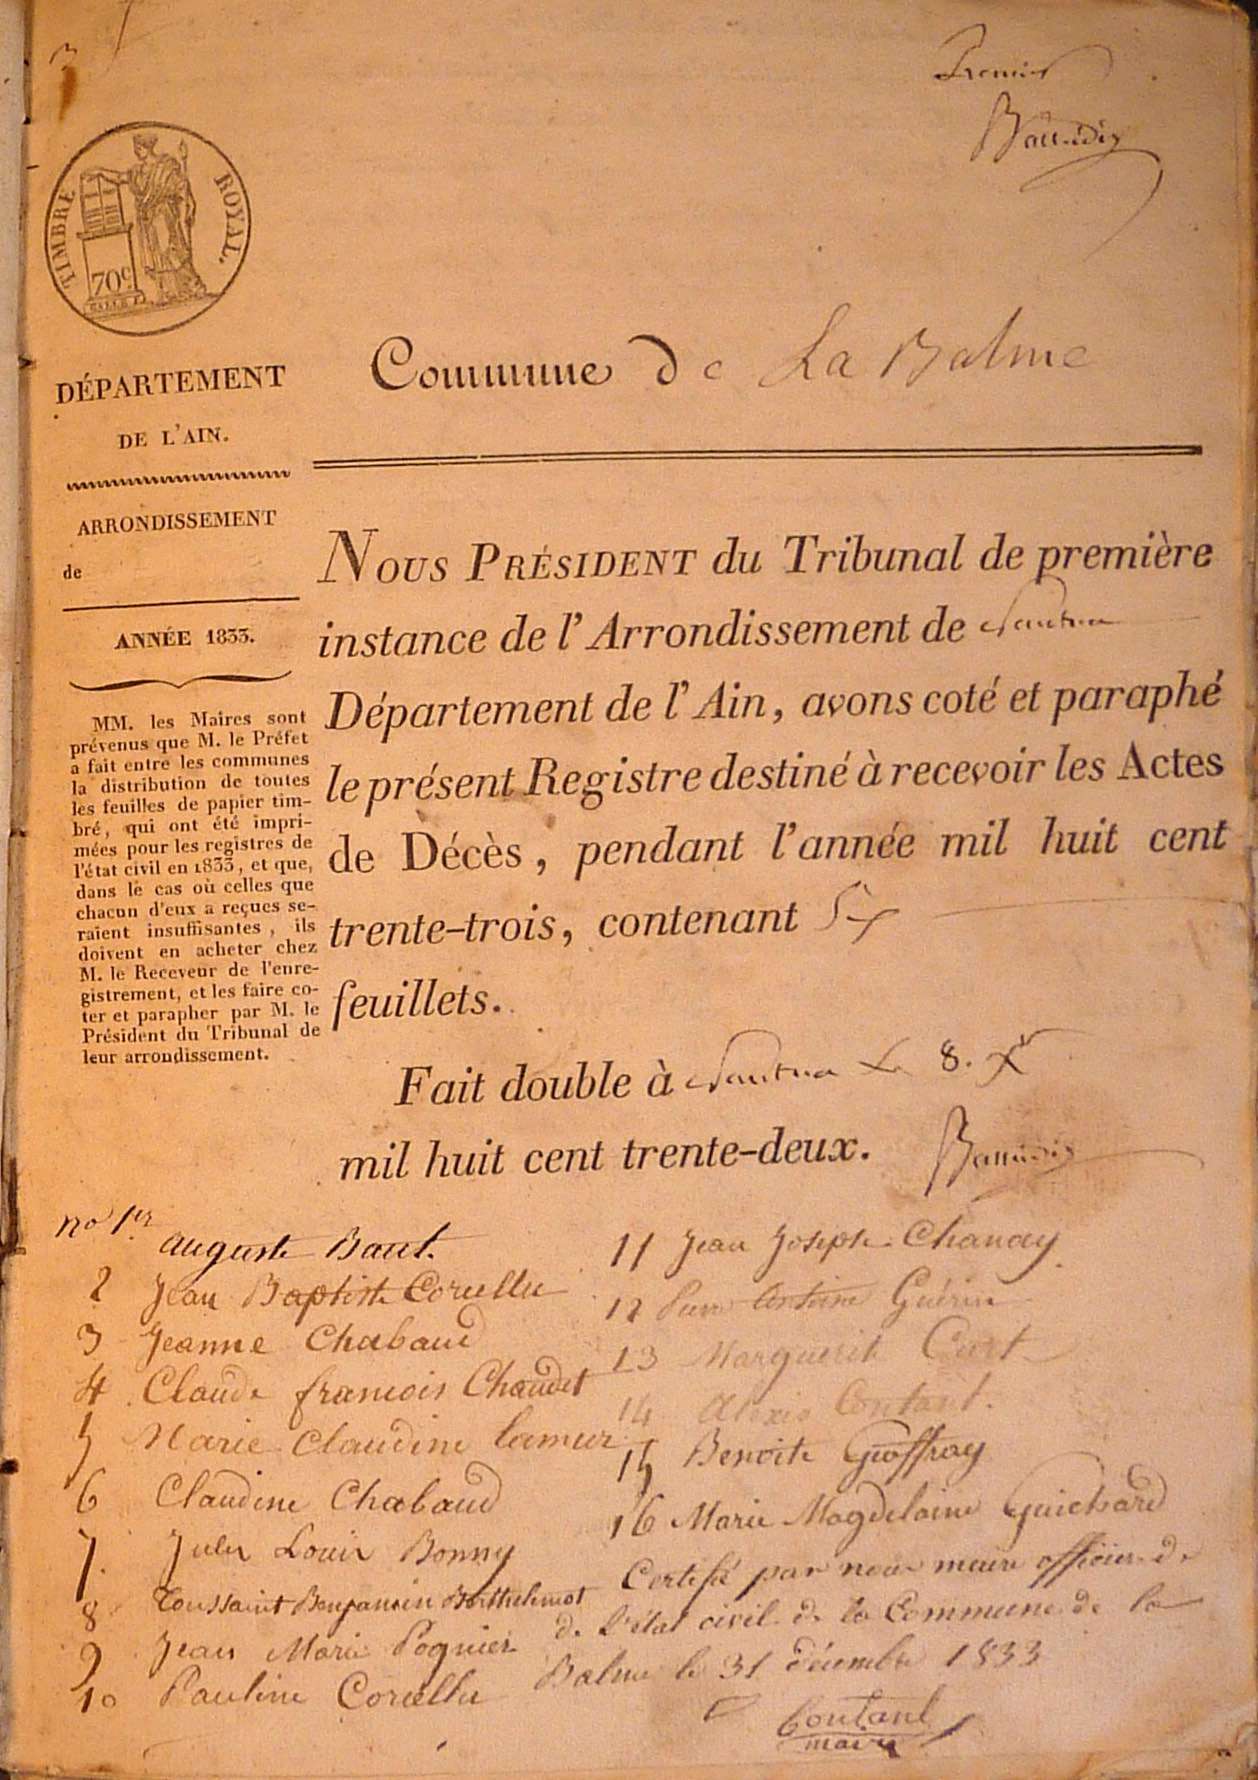 Premier
TIMBRE ROYAL.
70c
DÉPARTEMENT
DE L'AIN.
ARRONDISSEMENT
de
ANNÉE 1833.
MM. les Maires sont
prévenus que M. le Préfet
a fait entre les communes
la distribution de toutes
les feuilles de papier tim-
bré, qui ont été impri-
mées pour les registres de
l'état civil en 1833, et que,
dans le cas où celles que
chacun d'eux a reçues se-
raient insuffisantes, ils
doivent en acheter chez
M. le Receveur de l'enre-
gistrement, et les faire co-
ter et parapher par M. le
Président du Tribunal de
leur arrondissement.
Commune de La Balme
NOUS PRÉSIDENT du Tribunal de première
instance de l'Arrondissement de Nantua
Département de l'Ain, avons coté et paraphé
le présent Registre destiné à recevoir les Actes
de Décès, pendant l'année mil huit cent
trente-trois, contenant
feuillets.
Fait double à Nantua Le 8. Xr
mil huit cent trente-deux.
no 1er auguste Baut.
2 Jean Baptiste Corcellu
3 Jeanne Chabaud
4 Claude francois Chaudet
5 Marie Claudine lamur
6 Claudine Chabaud
7. Jules Louis Bonny
8 Toussaint Benjamin Berthelmot
9 Jean Marie Poguier
10 Pauline Corcellu
11 Jean Joseph Chanay
12 Pierre Antoine Guérin
13 Marguerite Curt
14 Alexis Coutant.
15 Benoite Geoffray
16 Marie Magdelaine Guichard
Certifié par nous maire officier de
de l'état civil de la Commune de la
Balme le 31 décembre 1833
Coutant
maire